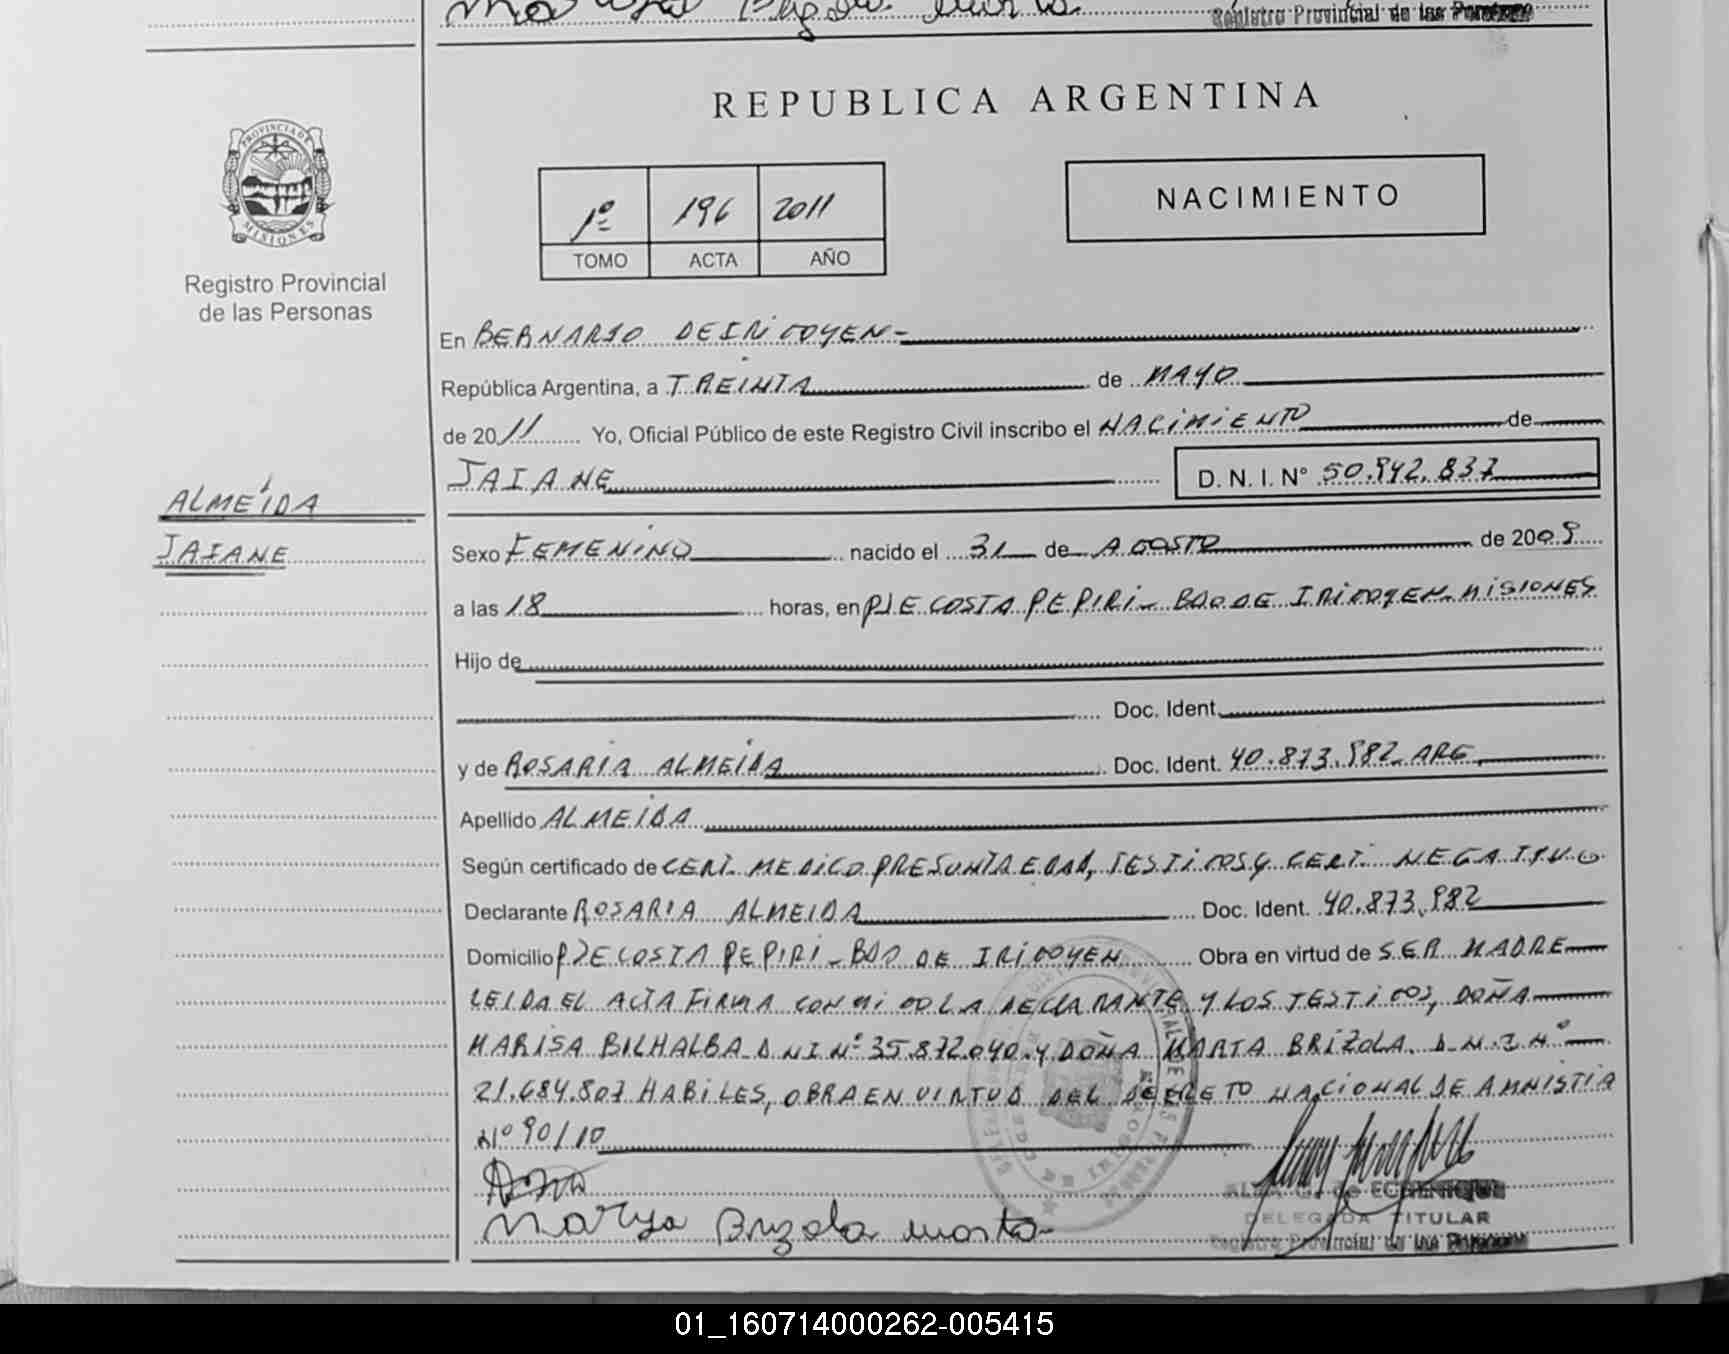 Registro Provincial de las Personas
REPUBLICA ARGENTINA
PROVINCIA DE
MISIONES
Registro Provincial
de las Personas
1º 196 2011
TOMO ACTA AÑO
NACIMIENTO
En BERNARDO DE IRIGOYEN-
República Argentina, a TREINTA de MAYO
de 2011 Yo, Oficial Público de este Registro Civil inscribo el NACIMIENTO de
JAIANE D. N. I. Nº 50.942.837
ALMEIDA
JAIANE
Sexo FEMENINO nacido el 31 de AGOSTO de 2009
a las 18 horas, en PJE COSTA PEPIRI- BDO DE IRIGOYEN- MISIONES
Hijo de
Doc. Ident.
y de ROSARIA ALMEIDA Doc. Ident. 40.873.982 ARG.
Apellido ALMEIDA
Según certificado de CERT. MEDICO PRESUNTA EDAD, TESTIGOS Y CERT. NEGATIVO
Declarante ROSARIA ALMEIDA Doc. Ident. 40.873.982
Domicilio PJE COSTA PEPIRI - BDO DE IRIGOYEN Obra en virtud de SER MADRE
LEIDA EL ACTA FIRMA CONMIGO LA DECLARANTE Y LOS TESTIGOS, DOÑA
MARISA BILHALBA DNI Nº 35.872.040. Y DOÑA MARTA BRIZOLA D.N.I Nº
21.684.807 HABILES, OBRA EN VIRTUD DEL DECRETO NACIONAL DE AMNISTIA
Nº 90/10
Brizola marta
DELEGADA TITULAR
Registro Provincial de las Personas
01_160714000262-005415